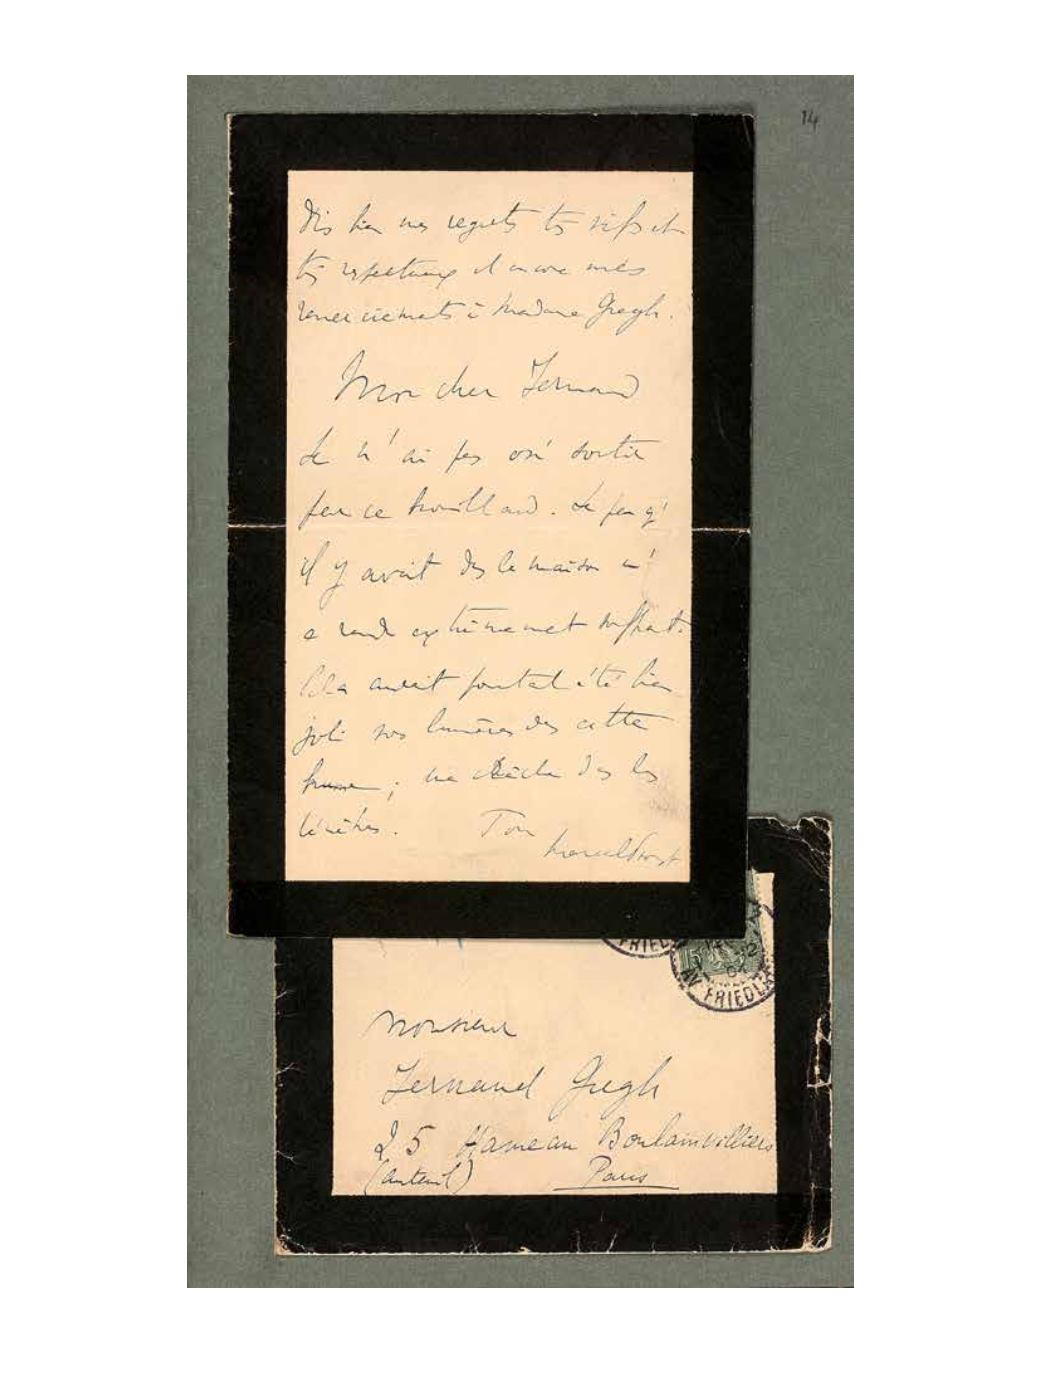 14
Dis bien mes regrets très vifs et
très respectueux et encore mes
remerciements à Madame Gregh.
Mon cher Fernand
Je n'ai pas osé sortir
par ce brouillard. Le peu qu'
il y avait ds la maison m'
a rendu extrêmement souffrant.
Cela aurait pourtant été bien
joli vos lumières ds cette
brume ; une crèche ds les
ténèbres. Ton
Marcel Proust
FRIEDL
AV FRIEDLA
Monsieur
Fernand Gregh
25 Hameau Boulainvilliers
(Auteuil) Paris